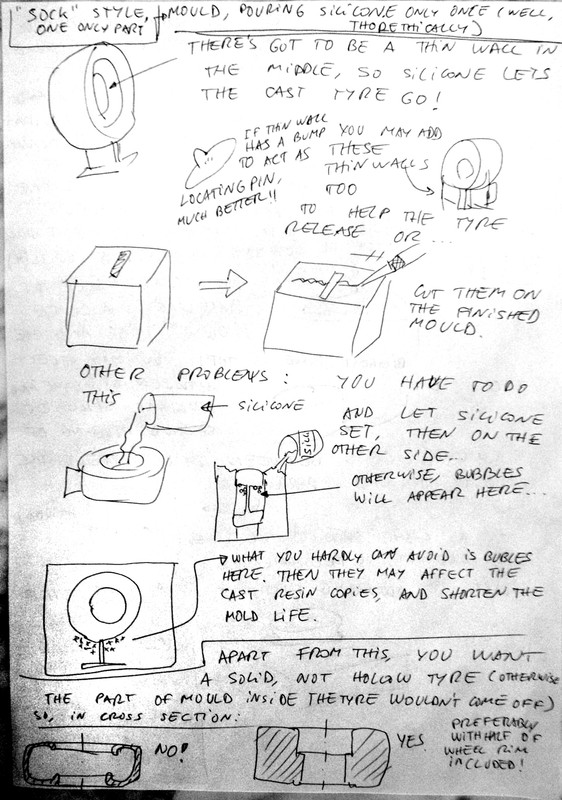 "SOCK" STYLE, MOULD, POURING SILICONE ONLY ONCE (WELL,
ONE ONLY PART THORETHICALLY)
THERE'S GOT TO BE A THIN WALL IN
THE MIDDLE, SO SILICONE LETS
THE CAST TYRE GO!
IF THIN WALL
HAS A BUMP
TO ACT AS
LOCATING PIN,
MUCH BETTER!!
YOU MAY ADD
THESE
THIN WALLS
TOO
TO HELP THE TYRE
RELEASE OR ...
CUT THEM ON
THE FINISHED
MOULD.
OTHER PROBLEMS:
THIS
SILICONE
YOU HAVE TO DO
AND LET SILICONE
SET, THEN ON THE
OTHER SIDE...
SILIC
OTHERWISE, BUBBLES
WILL APPEAR HERE...
WHAT YOU HARDLY CAN AVOID IS BUBLES
HERE. THEN THEY MAY AFFECT THE
CAST RESIN COPIES, AND SHORTEN THE
MOLD LIFE.
APART FROM THIS, YOU WANT
A SOLID, NOT HOLLOW TYRE (OTHERWISE
THE PART OF MOULD INSIDE THE TYRE WOULDN'T COME OFF)
SO, IN CROSS SECTION:
NO!
YES
PREFERABLY
WITH HALF OF
WHEEL RIM
INCLUDED!